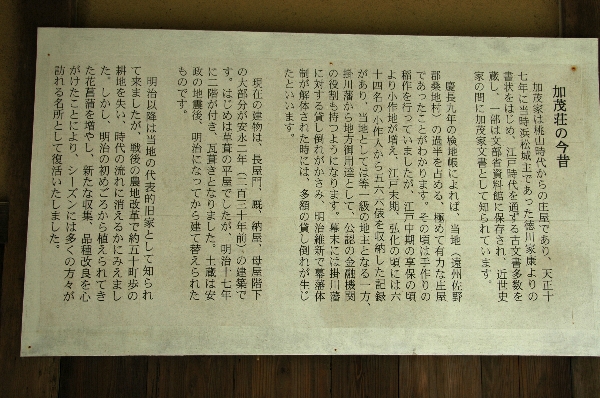 加茂荘の今昔
加茂家は桃山時代からの庄屋であり、天正十
七年に当時浜松城主であった徳川家康よりの
書状をはじめ、江戸時代を通ずる古文書多数を
蔵し、一部は文部省資料館に保存され、近世史
家の間に加茂家文書として知られています。
慶長九年の検地帳によれば、当地（遠州佐野
郡桑地村）の過半を占める、極めて有力な庄屋
であったことがわかります。その頃は手作りの
稲作を行っていましたが、江戸中期の享保の頃
より小作地が増え、江戸末期、弘化の頃には六
十四名の小作人から五六六俵を収納した記録
があり、当地としては第一級の地主となる一方、
掛川藩から地方御用達として、公認の金融機関
の役制も持つようになります。幕末には掛川藩
に対する貸し倒れがかさみ、明治維新で幕藩体
制が解体された時には、多額の貸し倒れが生じ
たといいます。
現在の建物は、長屋門、厩、納屋、母屋階下
の大部分が安永二年（二百三十年前）の建築で
す。はじめは草葺の平屋でしたが、明治十七年
に二階が付き、瓦葺きとなりました。土蔵は安
政の地震後、瓦葺きになってから建て替えられた
ものです。
明治以降は当地の代表的旧家として知られ
て来ましたが、戦後の農地改革で約五十町歩の
耕地を失い、時代の流れに消えるかにみえまし
た。しかし、明治の初めごろから植えられてき
た花菖蒲を増やし、新たな収集、品種改良を心
がけたことにより、シーズンには多くの方々が
訪れる名所として復活いたしました。